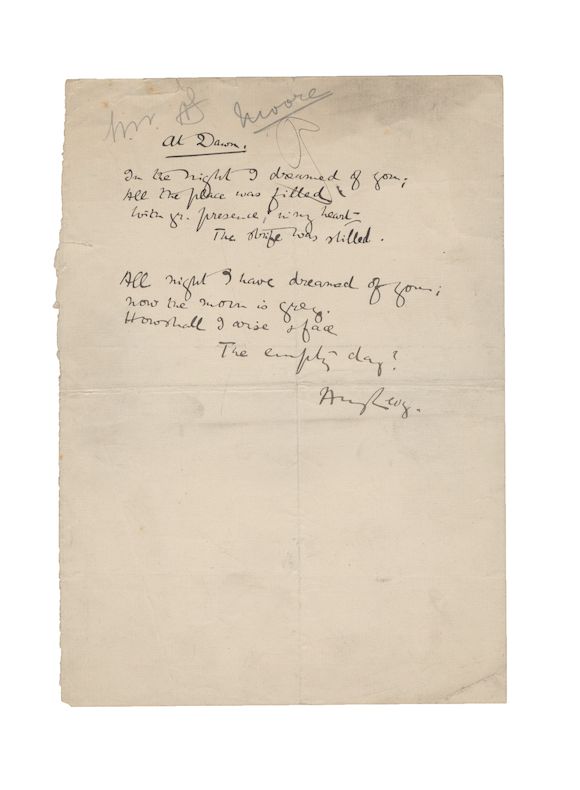 Mr. Moore
At Dawn.
In the night I dreamed of you;
All the place was filled
With yr. presence; in my heart
The strife was stilled.
All night I have dreamed of you;
Now the morn is grey.
How shall I arise & face
The empty day?
Amy Levy.